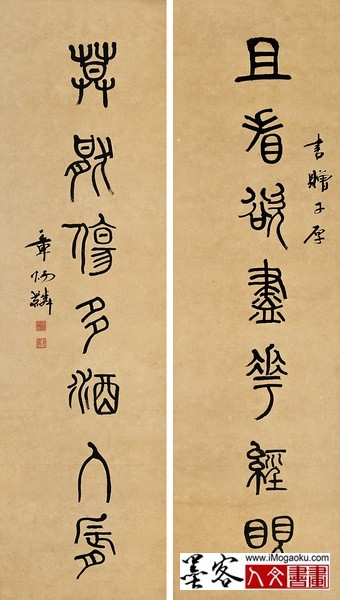 且看欲盡華經眼
書贈子厚
莫厭傷多酒入脣
章炳麟
墨客
www.iMogaoku.com
人文書畫